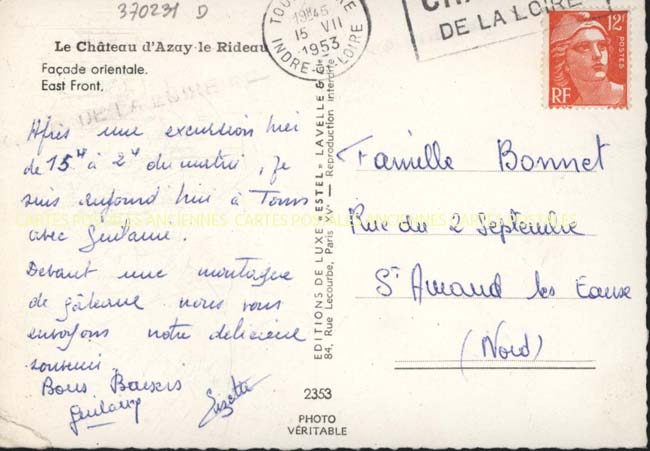 370231 D
TOU
E
19H45
15 VII
1953
INDRE-ET-LOIRE
DE LA LOIRE
12F
POSTES
RF
Le Château d'Azay-le Rideau
Façade orientale.
East Front,
DE LA LOIRE
Après une excursion hier
de 15H à 2H du matin, je
suis aujourd'hui à Tours
avec Guilaine.
Devant une montagne
de gâteaux nous vous
envoyons notre délicieux
souvenir.
Bons Baisers
Guilaine
Suzette
CARTES POSTALES ANCIENNES CARTES POSTALES ANCIENNES CARTES POSTALES
EDITIONS DE LUXE "ESTEL" - LAVELLE & Cie
84, Rue Lecourbe, Paris XVe — Reproduction interdite
2353
PHOTO
VÉRITABLE
Famille Bonnet
Rue du 2 Septembre
St Amand les Eaux
(Nord)